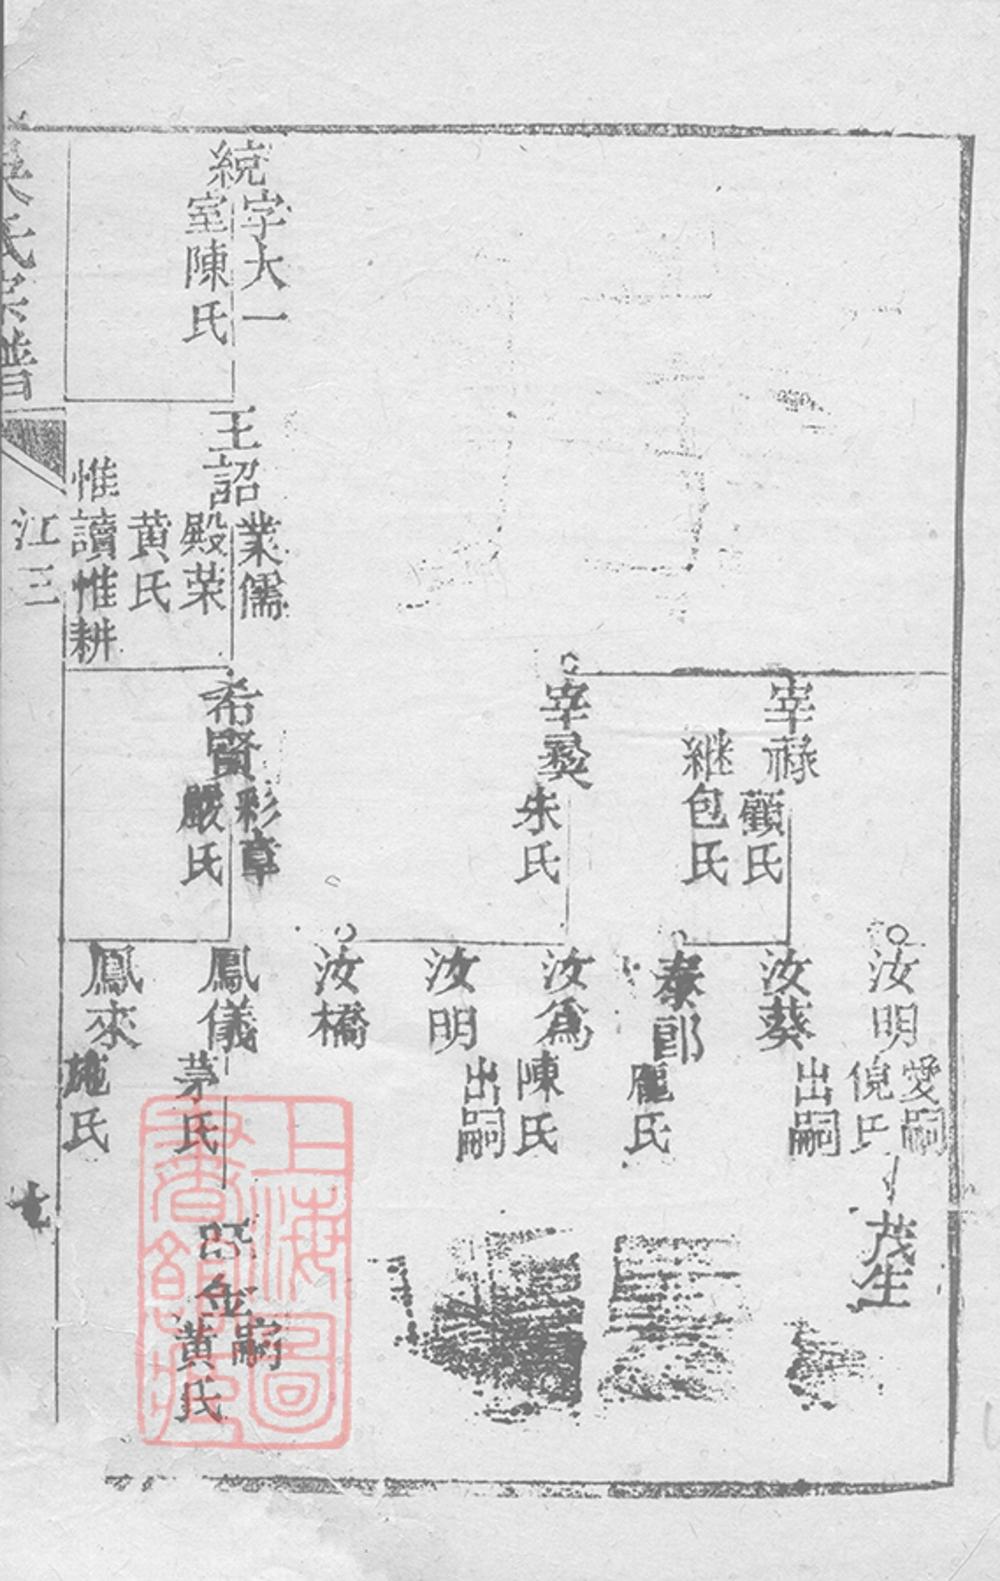 統
字大一
室陳氏
王詔
業儒
殿荣
黄氏
惟讀惟耕
宰祿
顧氏
継包氏
宰彛
朱氏
希賢
彩章
嚴氏
汝明
愛嗣
倪氏
茂生
汝葵
出嗣
泰郎
龐氏
汝為
陳氏
汝明
出嗣
汝橋
鳳儀
茅氏
嗣
黄氏
鳳來
施氏
氏宗譜
江三
上海圖
書館藏